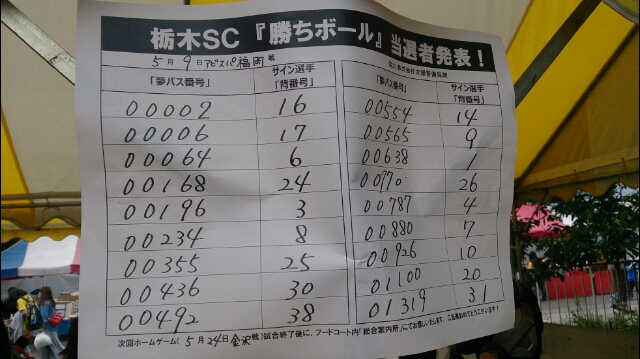 栃木SC 『勝ちボール』 当選者発表！
5月9日アビスパ福岡戦
「夢パス番号」 サイン選手「背番号」
00002 16
00006 17
00064 6
00168 24
00196 3
00234 8
00355 25
00436 30
00492 38
「夢パス番号」 サイン選手「背番号」
00554 14
00565 9
00638 1
00770 26
00787 4
00880 7
00926 10
01100 20
01319 31
次回ホームゲーム(5月24日金沢戦)試合終了後に、フードコート内「総合案内所」にてお渡しいたします。ご当選おめでとうございます！